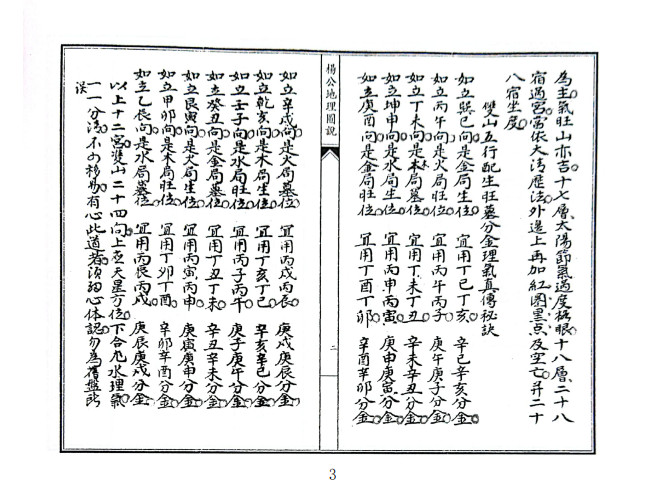 為主氣旺山亦吉十七層太陽節氣過度極眼十八層二十八
宿過宮當依大清歷法外邊上再加紅圈黑点及空亡并二十
八宿坐度
雙山五行配生旺墓分金理氣真傳秘訣
如立巽巳向是金局生位 宜用丁巳丁亥 辛巳辛亥分金
如立丙午向是火局旺位 宜用丙午丙子 庚午庚子分金
如立丁未向是木局墓位 宜用丁未丁丑 辛未辛丑分金
如立坤申向是水局生位 宜用丙申丙寅 庚申庚寅分金
如立庚酉向是金局旺位 宜用丁酉丁卯 辛酉辛卯分金
楊公地理圖說
二
如立辛戌向是火局墓位 宜用丙戌丙辰 庚戌庚辰分金
如立乾亥向是木局生位 宜用丁亥丁巳 辛亥辛巳分金
如立壬子向是水局旺位 宜用丙子丙午 庚子庚午分金
如立癸丑向是金局墓位 宜用丁丑丁未 辛丑辛未分金
如立艮寅向是火局生位 宜用丙寅丙申 庚寅庚申分金
如立甲卯向是木局旺位 宜用丁卯丁酉 辛卯辛酉分金
如立乙辰向是水局墓位 宜用丙辰丙戌 庚辰庚戌分金
以上十二宮雙山二十四向上應天星方位下合九水理氣
一一分清不可移易有心此道者須細心体認勿為舊盤所
误
3